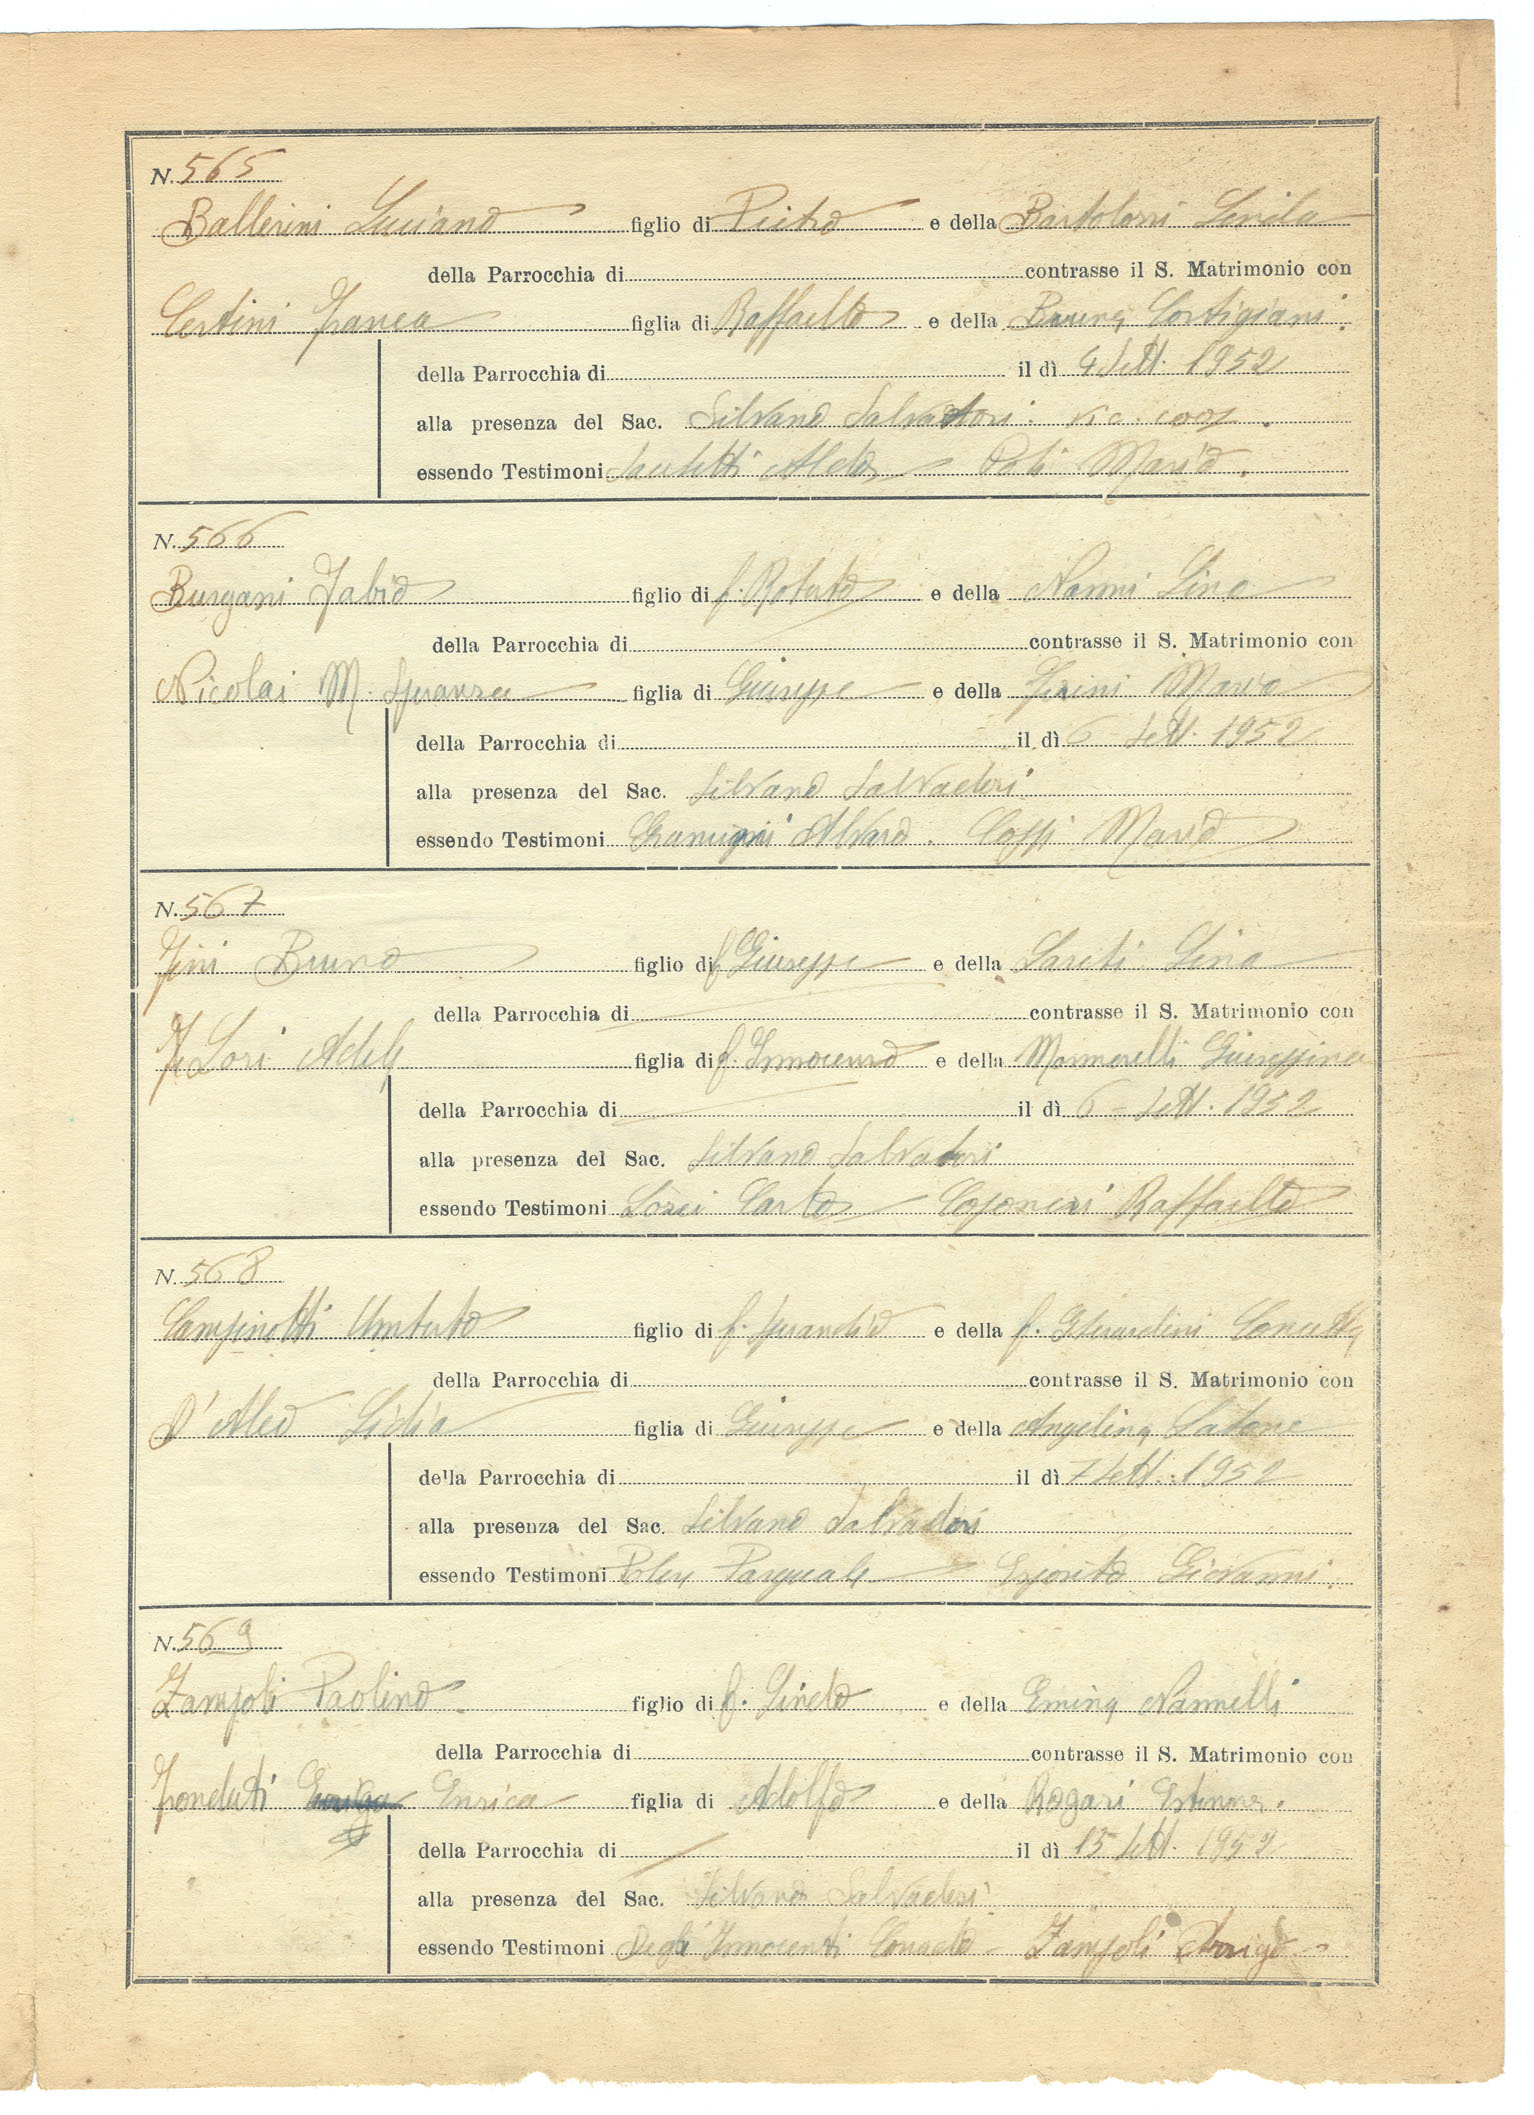 N. 565
Ballerini Luciano figlio di Pietro e della Bartolozzi Linda
della Parrocchia di contrasse il S. Matrimonio con
Certini Franca figlia di Raffaello e della Bruna Cortigiani.
della Parrocchia di il dì 4 Sett. 1952
alla presenza del Sac. Silvano Salvadori. vic. coop.
essendo Testimoni Aldo Poli Mario.
N. 566
Burgassi Fabio figlio di f. Roberto e della Nanni Lina
della Parrocchia di contrasse il S. Matrimonio con
Nicolai M. Speranza figlia di Giuseppe e della Maria
della Parrocchia di il dì 6 Sett. 1952
alla presenza del Sac. Silvano Salvadori
essendo Testimoni Gramigni Alvaro. Mario
N. 567
Fini Bruno figlio di f. Giuseppe e della Lina
della Parrocchia di contrasse il S. Matrimonio con
Lori Adele figlia di f. Innocenzo e della Mommorelli Giuseppina
della Parrocchia di il dì 6 - Sett. 1952
alla presenza del Sac. Silvano Salvadori
essendo Testimoni Carlo Raffaello
N. 568
Campinotti Umberto figlio di f. Sperandio e della f. Gherardini Concetta
della Parrocchia di contrasse il S. Matrimonio con
D'Aleo Lidia figlia di Giuseppe e della Angelina
della Parrocchia di il dì 7 Sett. 1952
alla presenza del Sac. Silvano Salvadori
essendo Testimoni Pasquale Esposito Giovanni.
N. 569
Zampoli Paolino figlio di f. e della Emina Nannelli
della Parrocchia di contrasse il S. Matrimonio con
Fonduti Enrica figlia di Adolfo e della Rogari
della Parrocchia di il dì 15 Sett. 1952
alla presenza del Sac. Silvano Salvadori
essendo Testimoni Degli Innocenti Corrado - Zampoli Arrigo